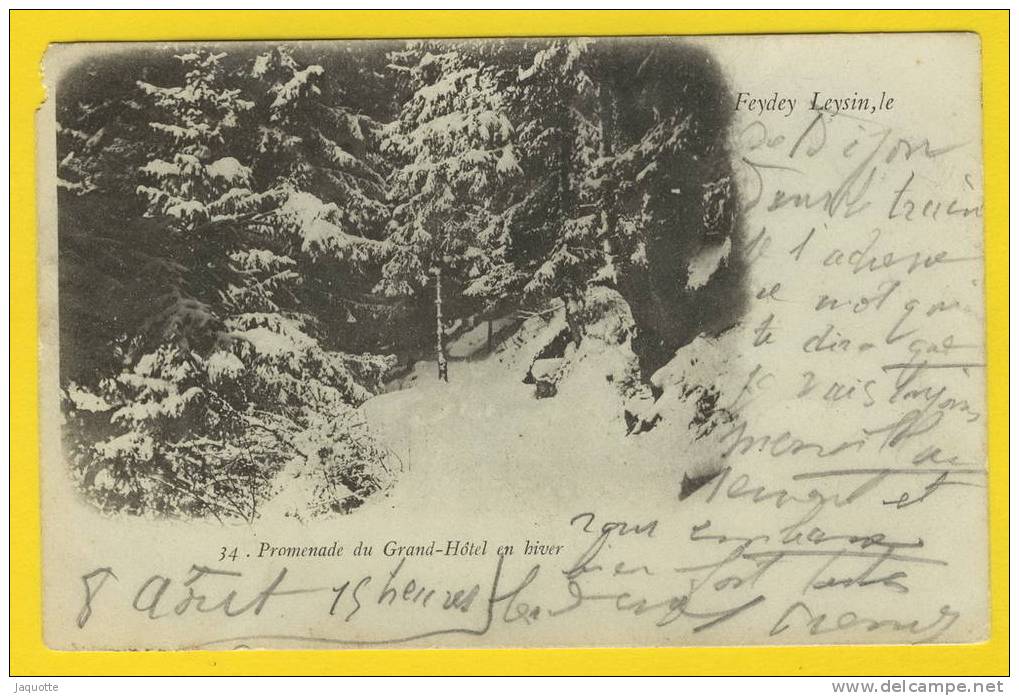 Feydey Leysin, le
De Dijon
Dans le train
je t'adresse
ce mot qui
te dira que
je vais toujours
et
vous embrasse
bien fort
34. Promenade du Grand-Hôtel en hiver
8 Août 15 heures
jaquotte
www.delcampe.net